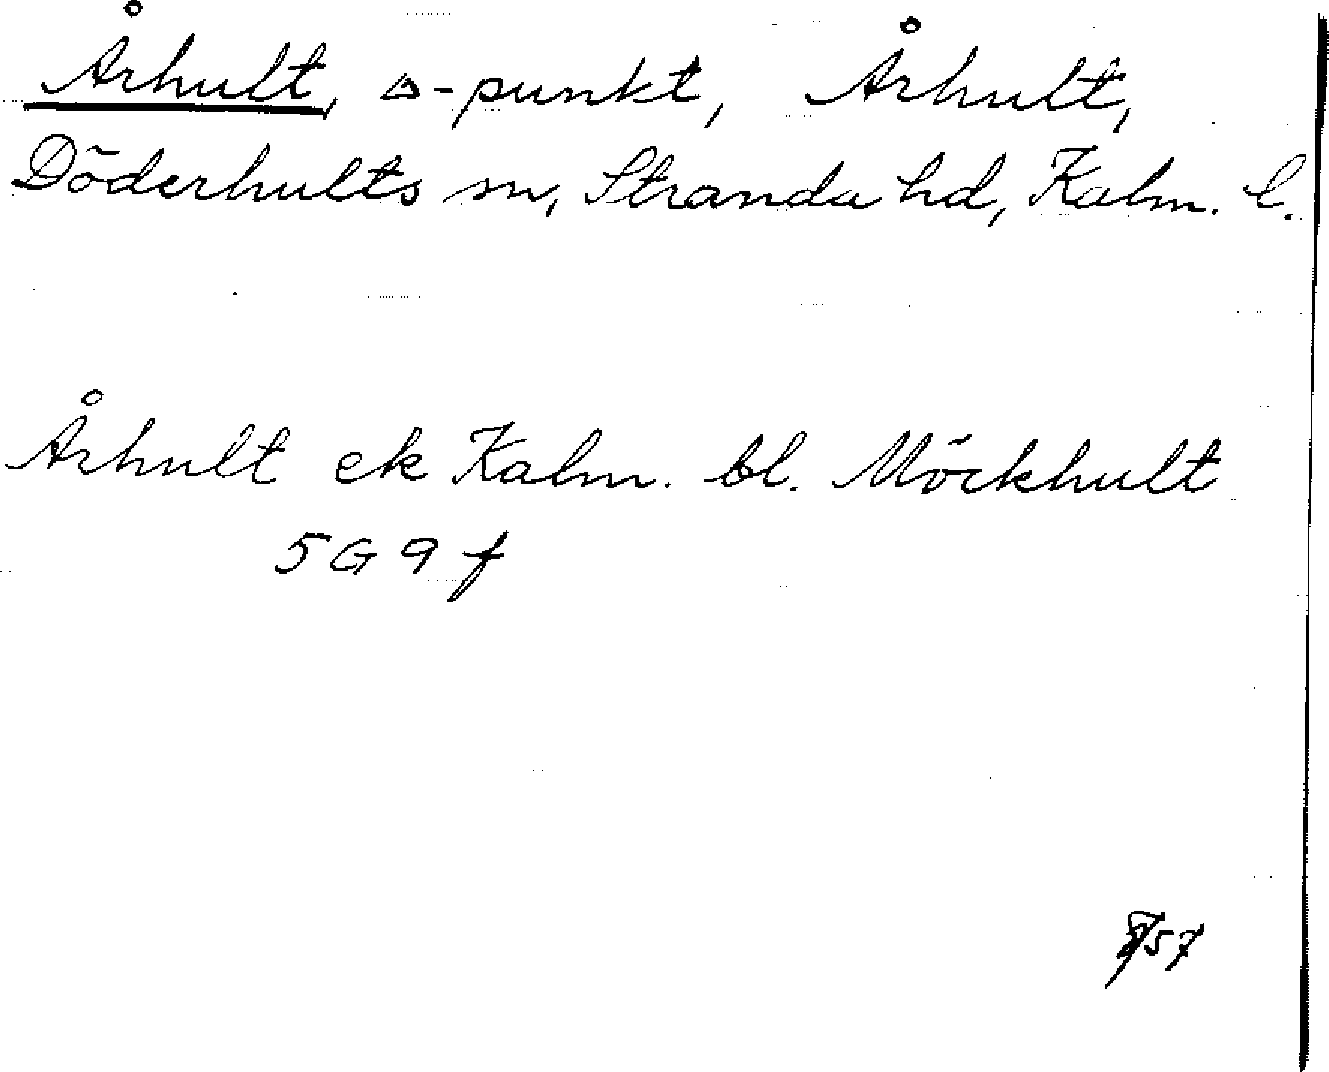 Århult, △-punkt, Århult,
Döderhults sn, Stranda hd, Kalm. l.
Århult ek Kalm. bl. Möckhult
5G 9 f